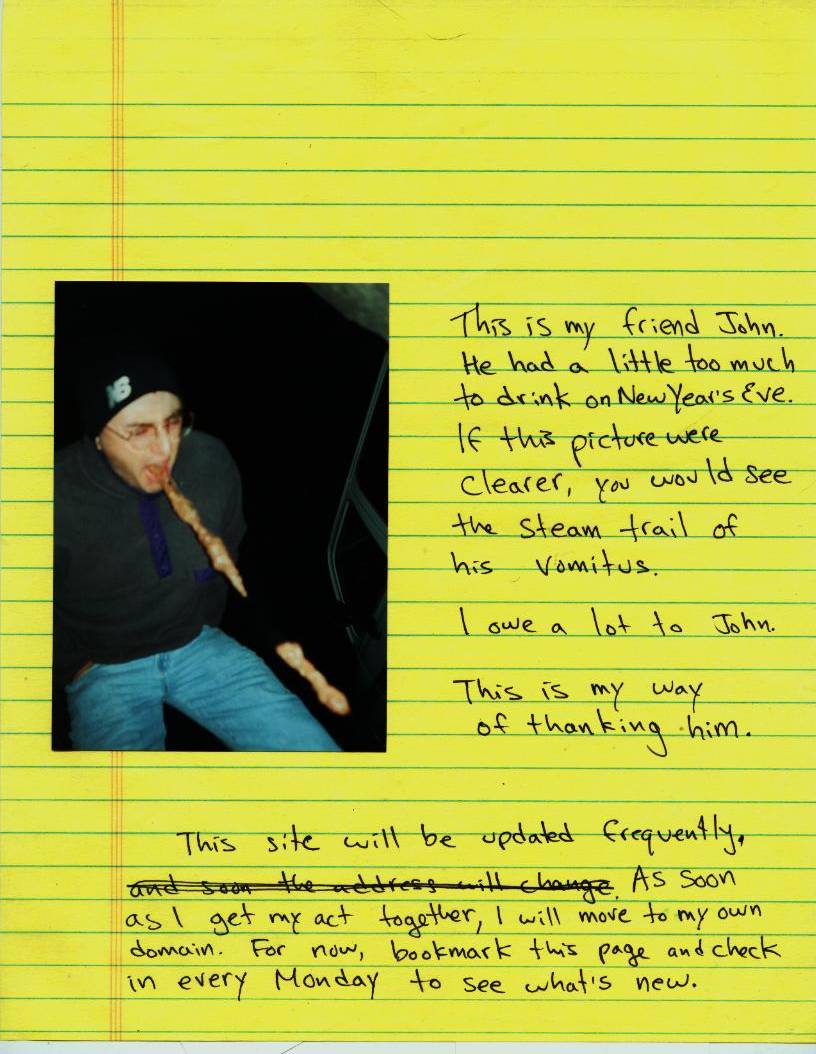 This is my friend John.
He had a little too much
to drink on New Year's Eve.
If this picture were
clearer, you would see
the steam trail of
his vomitus.
I owe a lot to John.
This is my way
of thanking him.
This site will be updated frequently,
and soon the address will change. As soon
as I get my act together, I will move to my own
domain. For now, bookmark this page and check
in every Monday to see what's new.